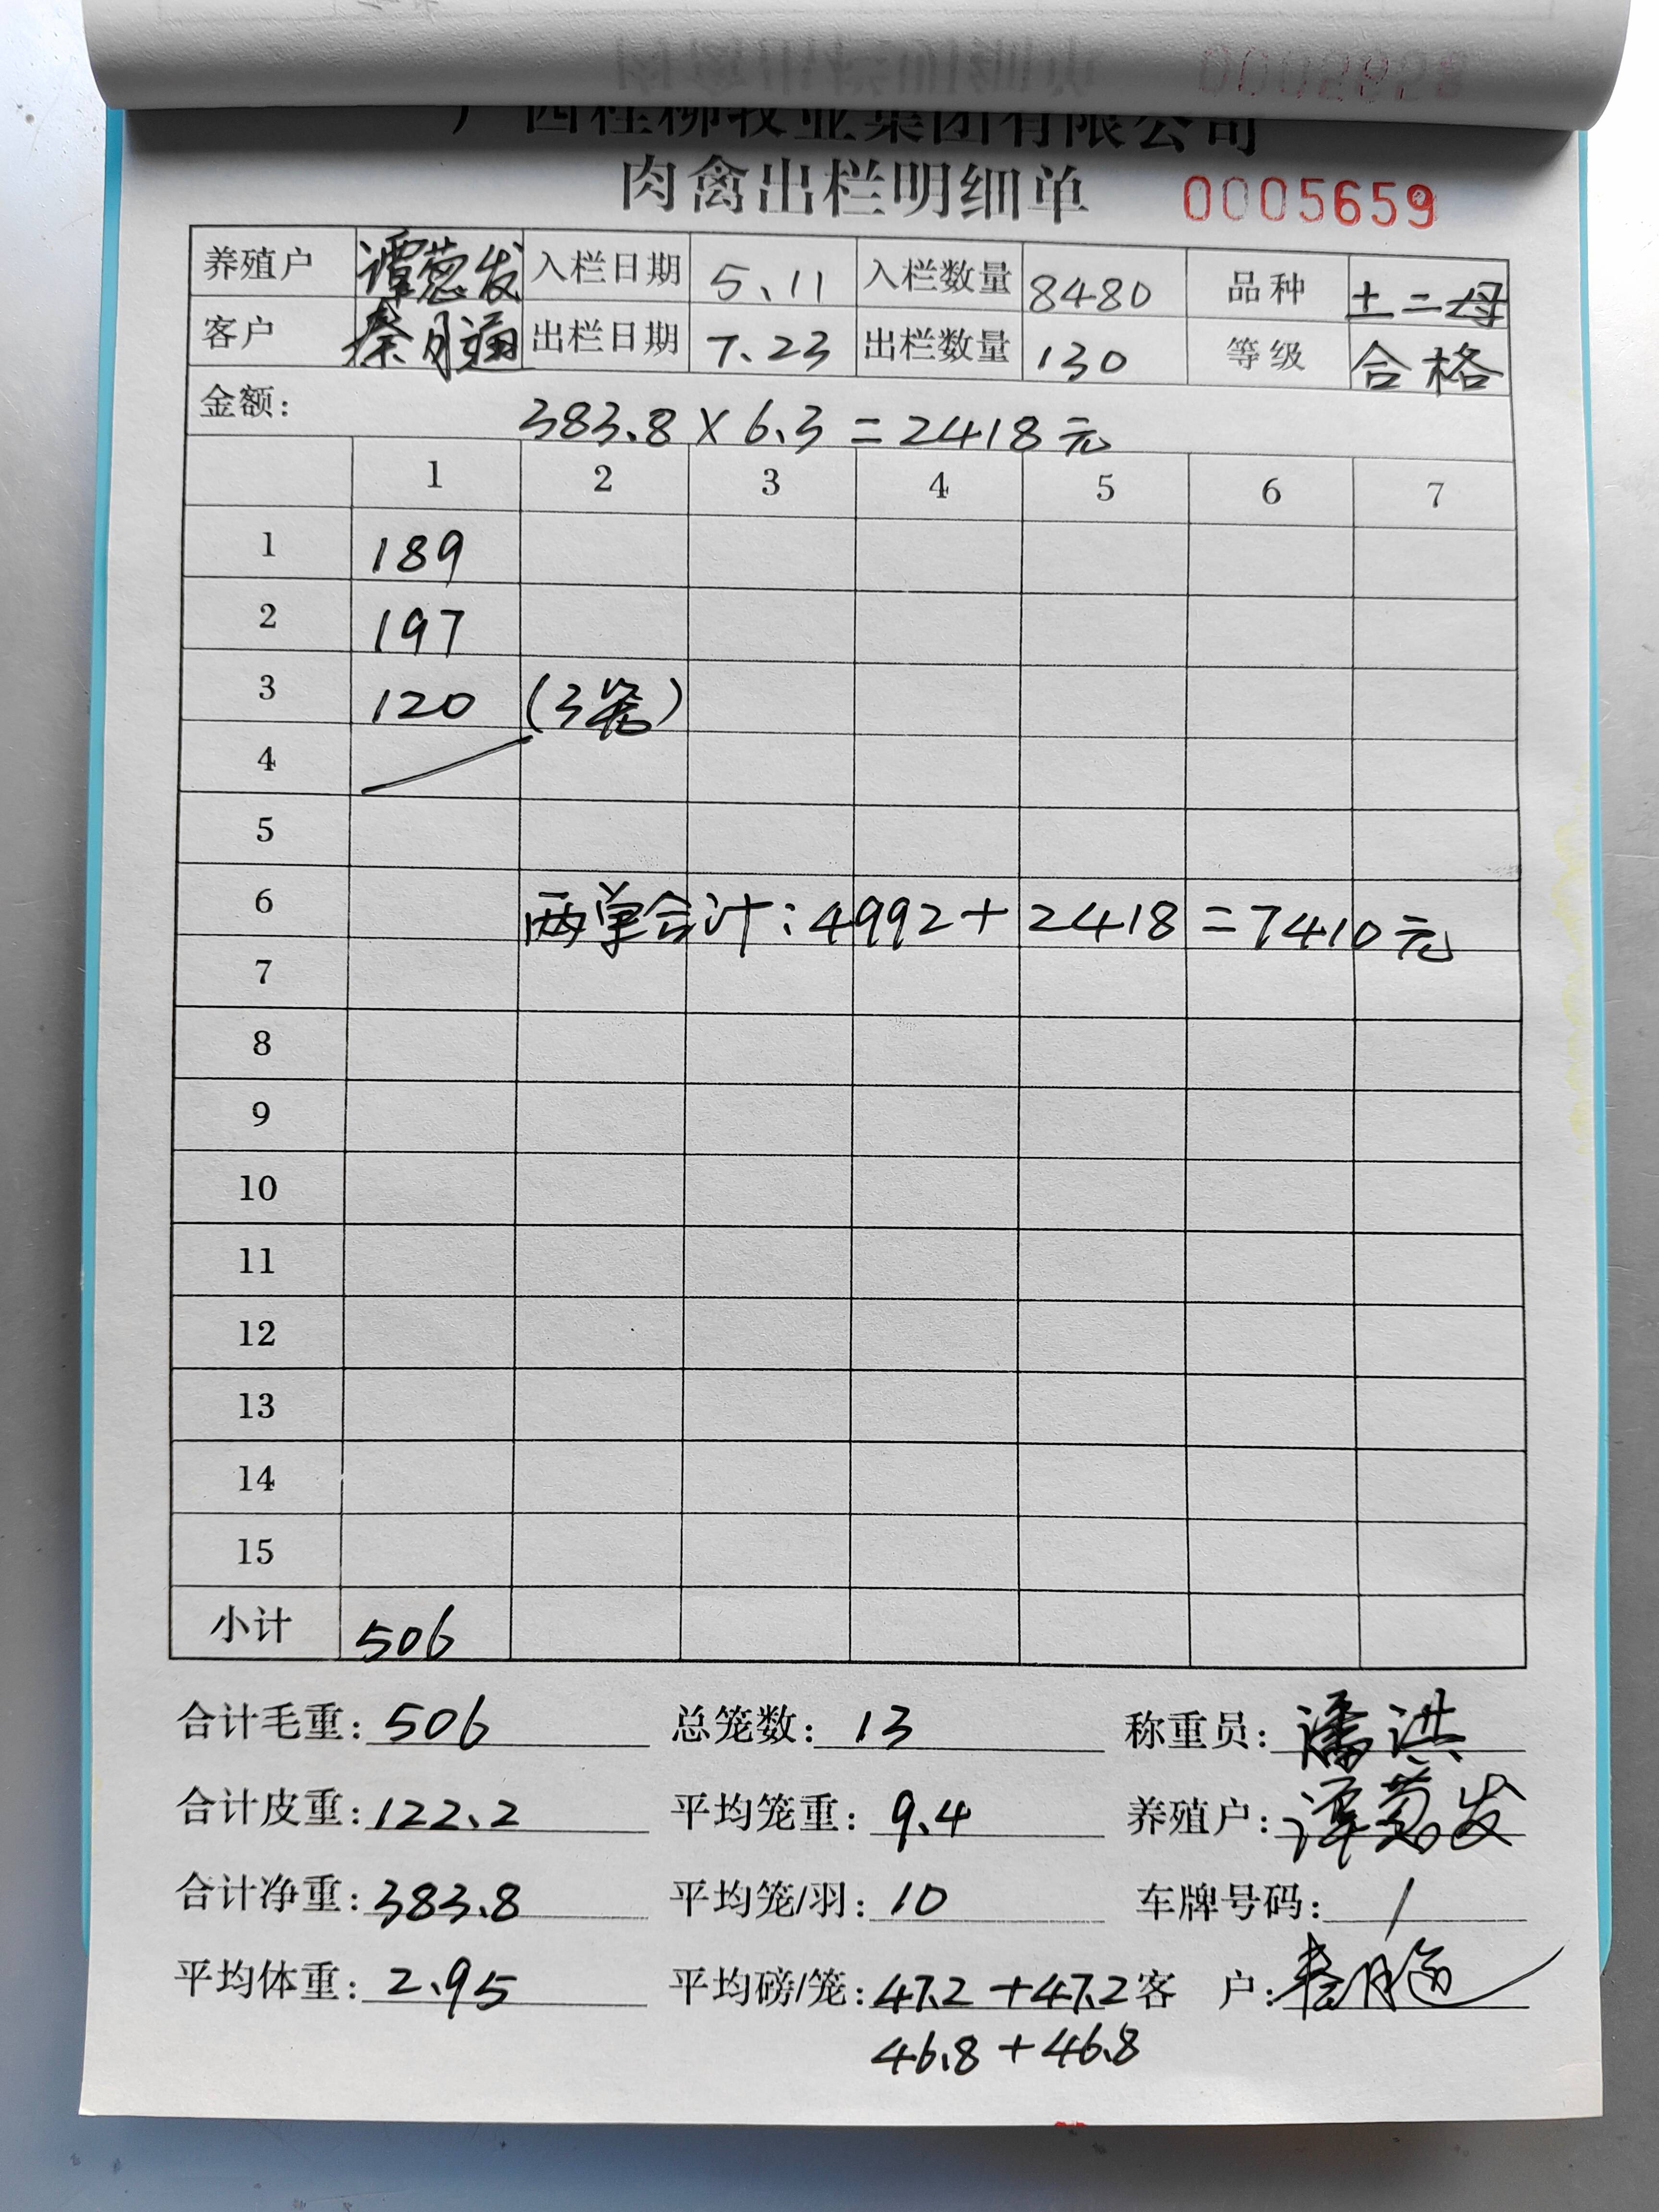 广西桂柳牧业集团有限公司
肉禽出栏明细单 0005659
养殖户 谭葱发 入栏日期 5.11 入栏数量 8480 品种 土二母
客户 秦月 出栏日期 7.23 出栏数量 130 等级 合格
金额: 383.8×6.3=2418元
1 2 3 4 5 6 7
1 189
2 197
3 120 (3笼)
4
5
6 两单合计:4992+2418=7410元
7
8
9
10
11
12
13
14
15
小计 506
合计毛重:506 总笼数:13 称重员:潘洪
合计皮重:122.2 平均笼重:9.4 养殖户:谭葱发
合计净重:383.8 平均笼/羽:10 车牌号码:/
平均体重:2.95 平均磅/笼:47.2+47.2 客 户:秦月
46.8+46.8